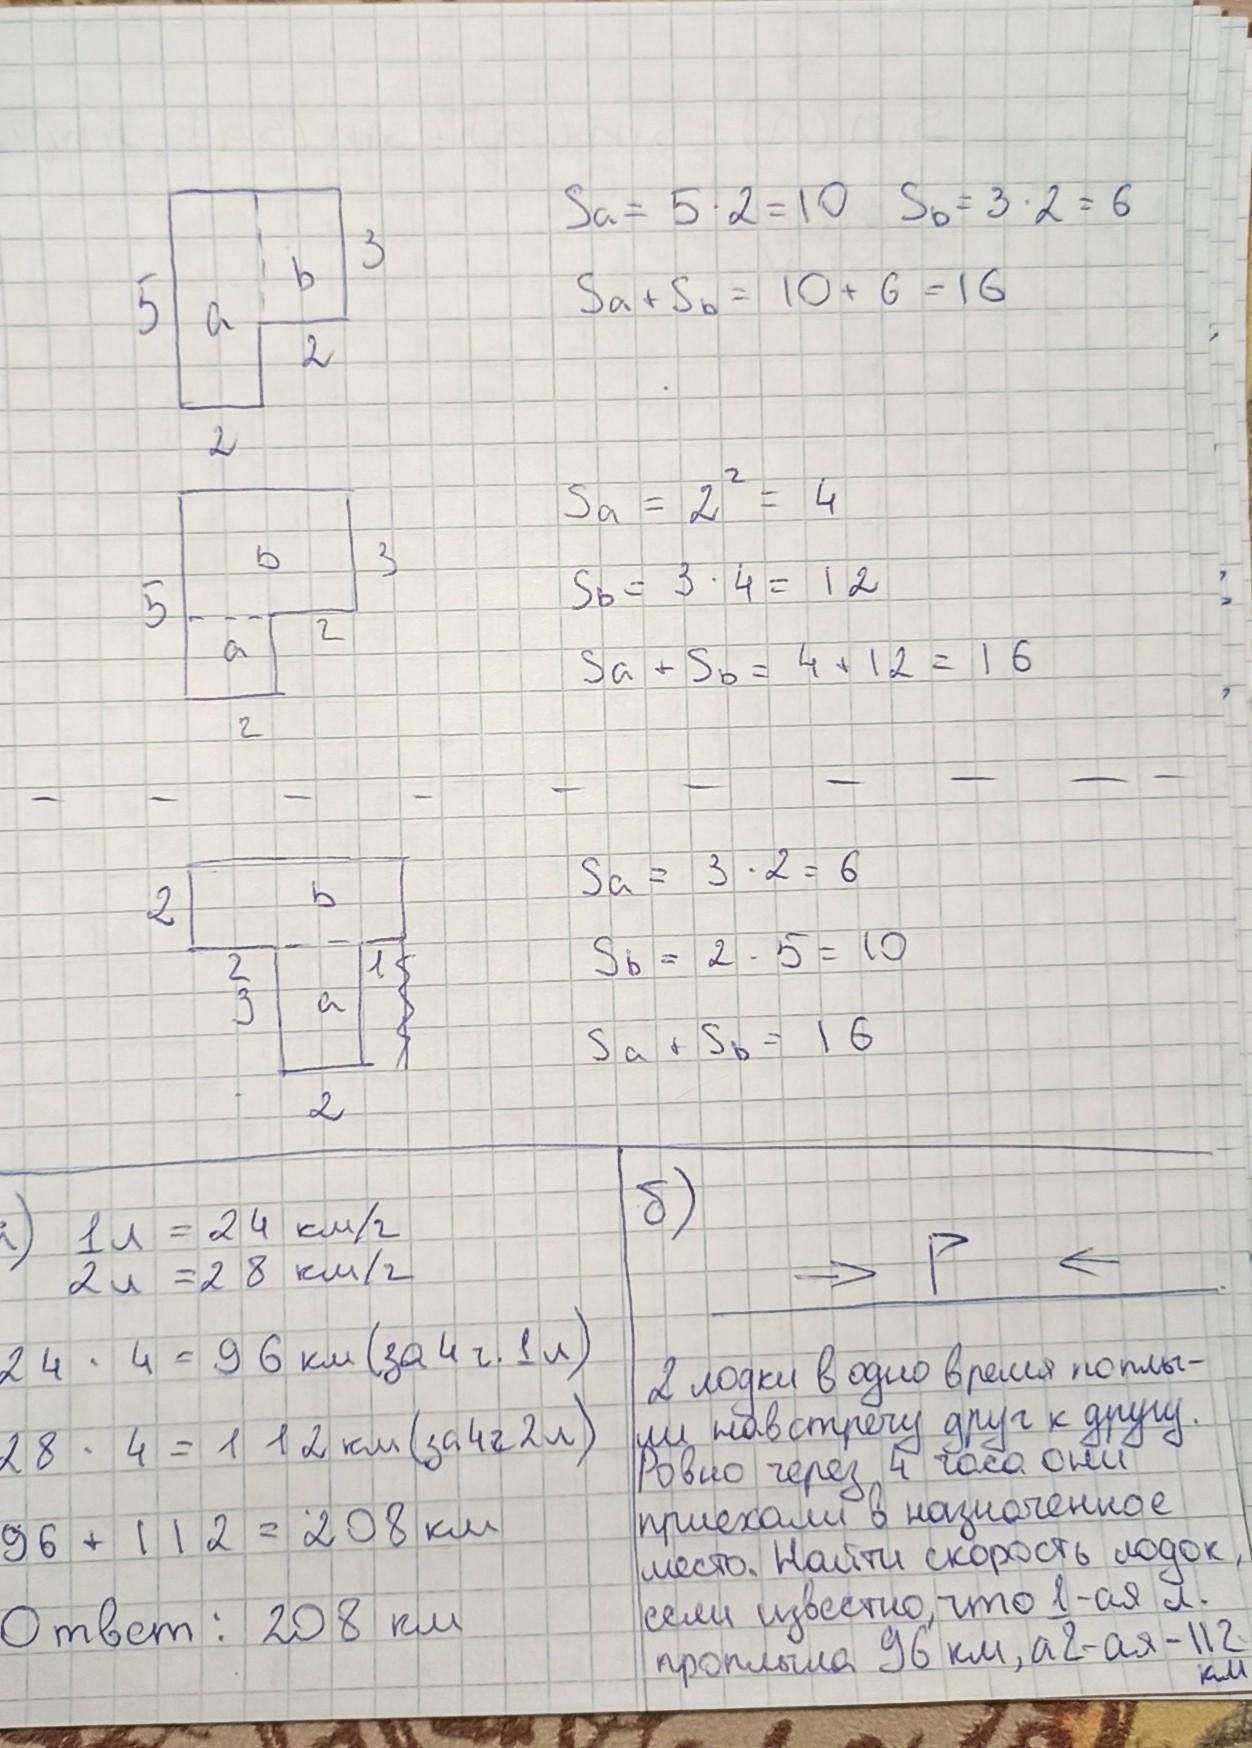 Sa = 5 · 2 = 10 Sb = 3 · 2 = 6
Sa + Sb = 10 + 6 = 16
5
a
b
3
2
2
Sa = 2² = 4
Sb = 3 · 4 = 12
Sa + Sb = 4 + 12 = 16
b
3
5
a
2
2
Sa = 3 · 2 = 6
Sb = 2 · 5 = 10
Sa + Sb = 16
2
b
2
1
3
a
2
а) 1л = 24 км/ч
2л = 28 км/ч
24 · 4 = 96 км (за 4 ч. 1л)
28 · 4 = 112 км (за 4ч 2л)
96 + 112 = 208 км
Ответ: 208 км
б)
2 лодки в одно время поплы-
ли навстречу друг к другу.
Ровно через 4 часа они
приехали в назначенное
место. Найти скорость лодок,
если известно, что 1-ая л.
проплыла 96 км, а 2-ая - 112
км